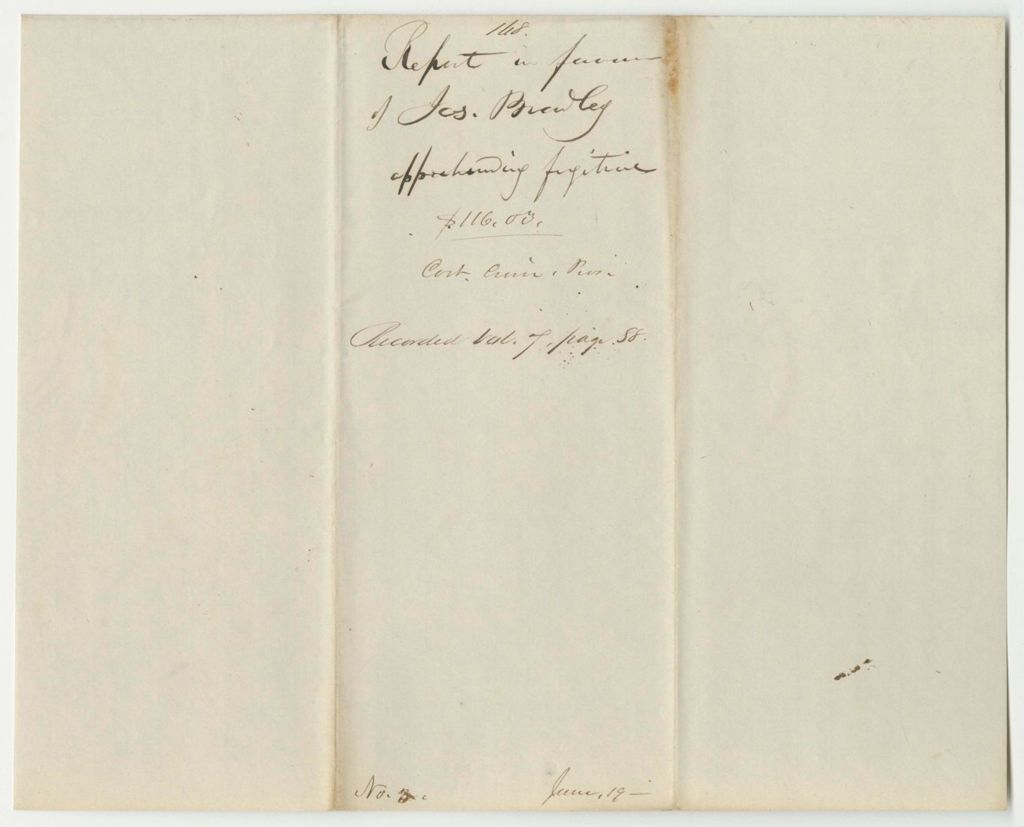 168.
Report in favour
of Jas. Bradley
apprehending fugitive
$116.03.
Cost. Crim. Pros.
Recorded Vol. 7, page 58.
No. 3.
June, 19